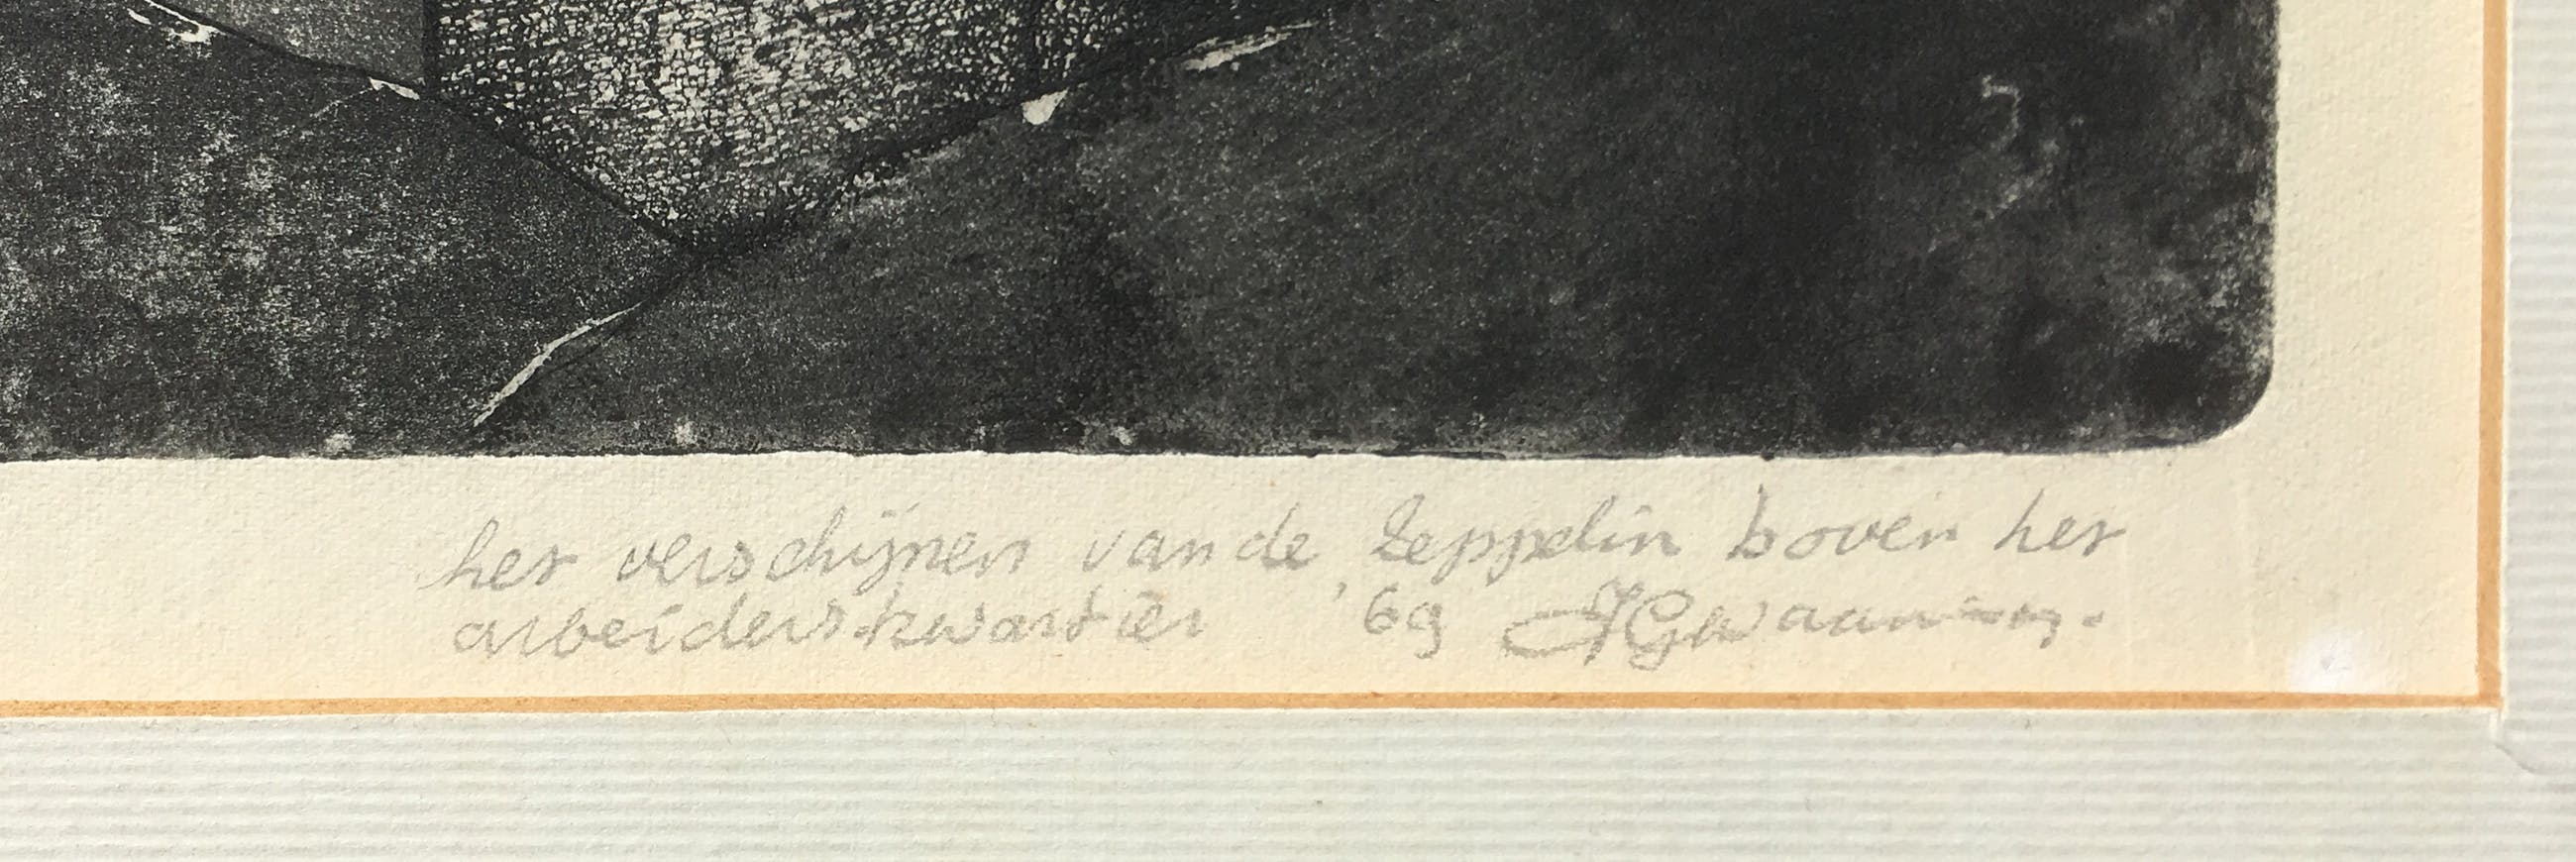 het verschijnen van de Zeppelin boven het
arbeiderskwartier '69